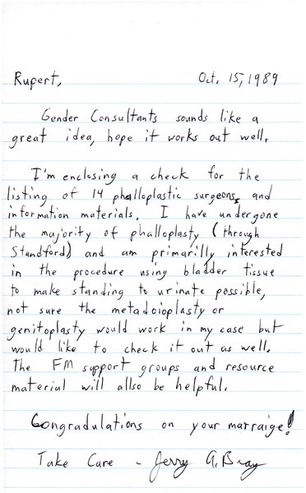 Rupert, Oct. 15, 1989
Gender Consultants sounds like a
great idea, hope it works out well.
I'm enclosing a check for the
listing of 14 phalloplastic surgeons, and
information materials. I have undergone
the majority of phalloplasty (through
Standford) and am primarilly interested
in the procedure using bladder tissue
to make standing to urinate possible,
not sure the metadoioplasty or
genitoplasty would work in my case but
would like to check it out as well.
The FM support groups and resource
material will allso be helpful.
Congradulations on your marraige!
Take Care - Jerry A. Bray